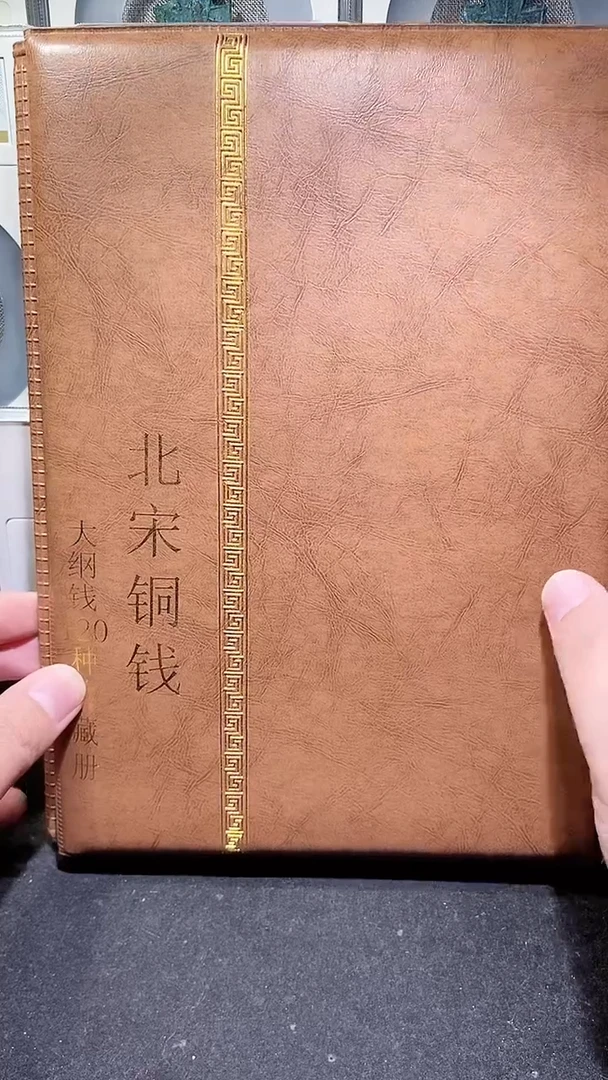 北宋铜钱
大纲钱120种
藏册